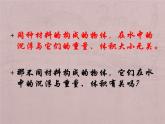 同种材料的构成的物体，在水中
的沉浮与它们的重量、体积大小无关。
那不同材料构成的物体，它们在水
中的沉浮与它们的重量、体积有关吗？